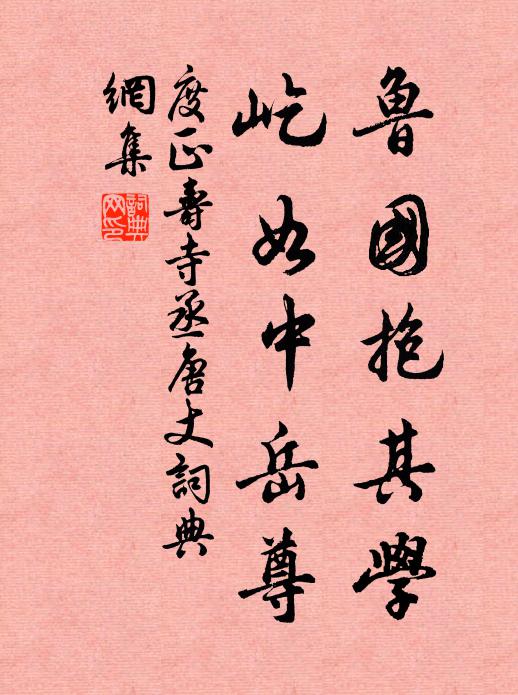 魯國抱其學
屹如中岳尊
度正壽寺丞唐丈詞典
網集
詞典
網印